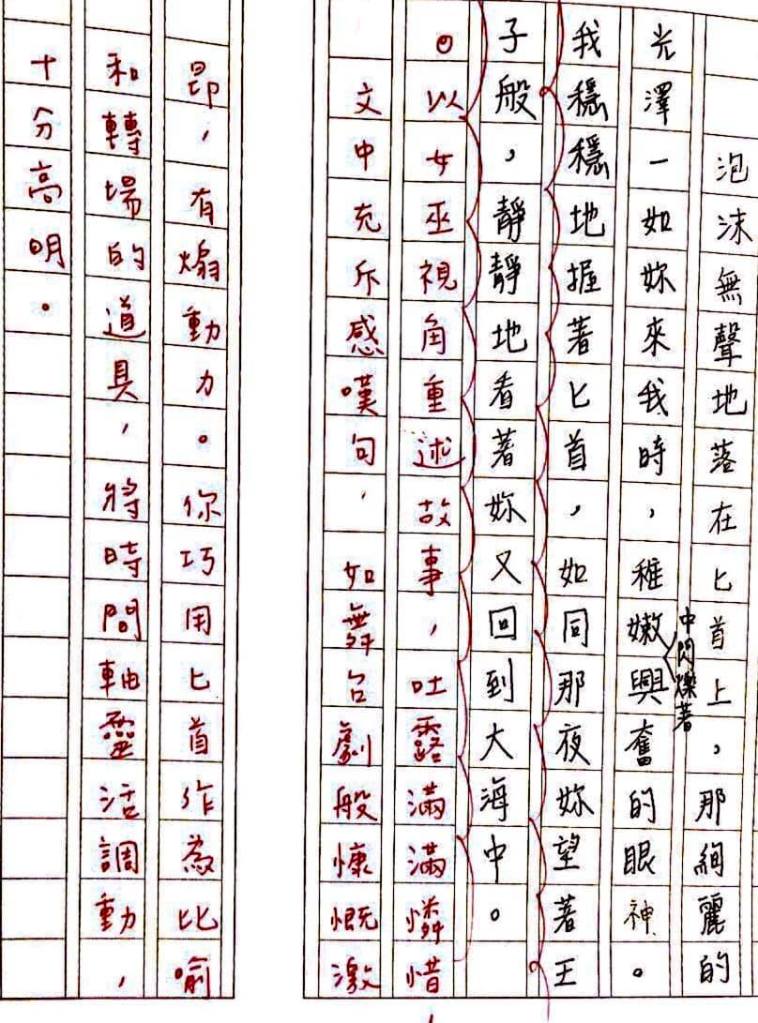 泡沫無聲地落在匕首上，那絢麗的
光澤一如妳來我時，稚嫩興奮的眼神。
中閃爍著
我穩穩地握著匕首，如同那夜妳望著王
子般，靜靜地看著妳又回到大海中。
。以女巫視角重述故事，吐露滿滿憐惜
文中充斥感嘆句，如舞台劇般慷慨激
昂，有煽動力。你巧用匕首作為比喻
和轉場的道具，將時間軸靈活調動，
十分高明。